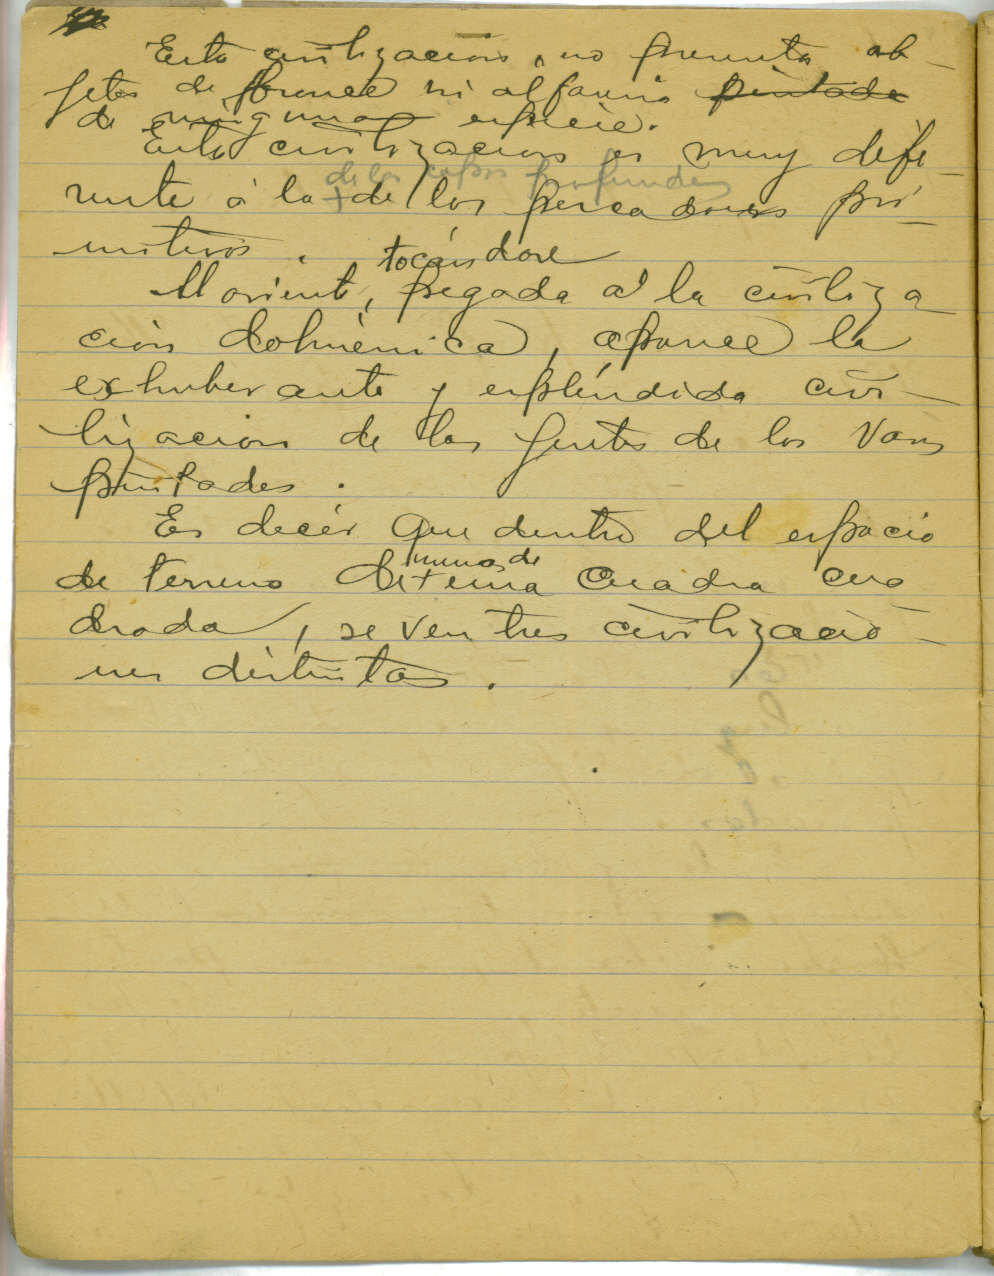 Esta civilización, no presenta ob-
jetos de bronce ni alfarería pintada
de ninguna especie.
Esta civilización es muy dife-
de las capas profundas
rente á la + de los pescadores pri-
mitivos. tocándose
Al oriente, pegada a la civiliza-
ción dolménica, aparece la
exhuberante y espléndida civi-
lización de las gentes de los Vasos
pintados.
Es decir que dentro del espacio
menos de
de terreno de + una cuadra cua
drada, se ven tres civilizacio-
nes distintas.